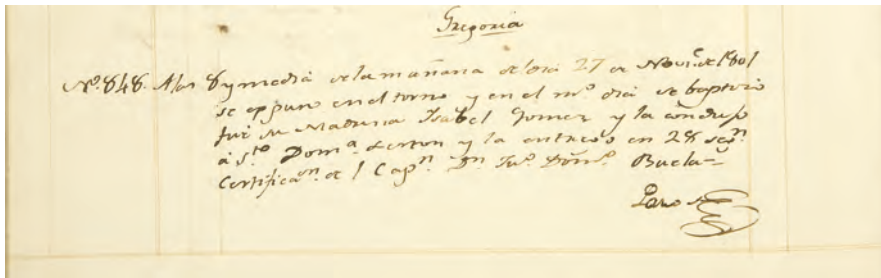 Gregoria
Nº. 848. A las 8 y media de la mañana del dia 27 de Novi.e de 1801
se expuso en el torno y en el m.º dia se baptizó
fué su Madrina Isabel Gomez y la condujo
á S.to Dom.º y la entregó en 28 seg.n
Certificac.on de l Cap.n D.n